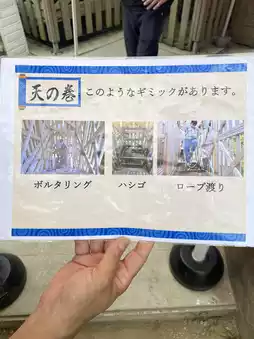 天の巻 このようなギミックがあります。
ボルタリング ハシゴ ロープ渡り